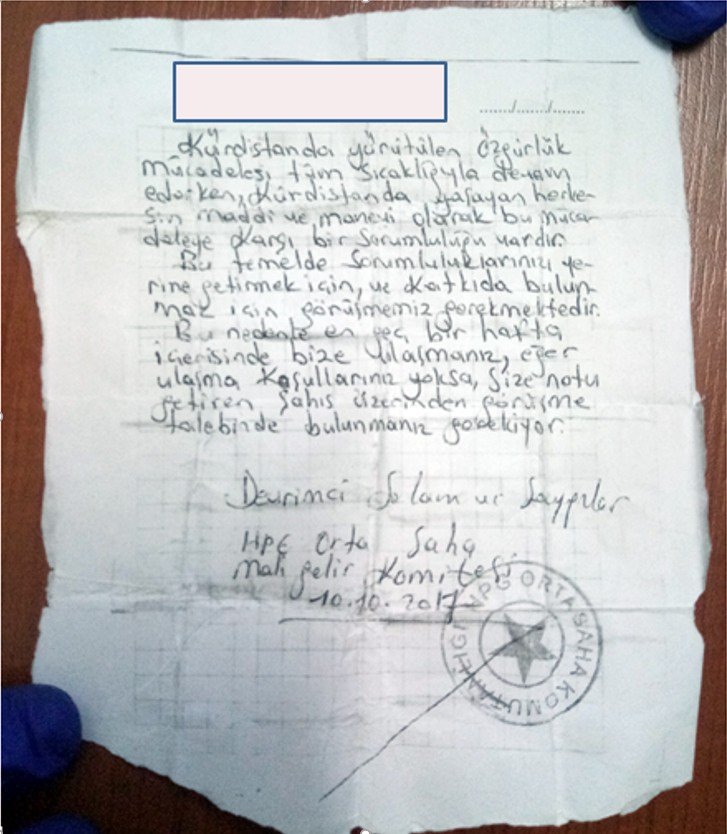 ....../....../......
Kürdistanda yürütülen özgürlük
mücadelesi tüm sıcaklığıyla devam
ederken, Kürdistanda yaşayan herke-
sin maddi ve manevi olarak bu müca-
deleye karşı bir sorumluluğu vardır.
Bu temelde sorumluluklarınızı ye-
rine getirmek için, ve katkıda bulun-
mak için görüşmemiz gerekmektedir.
Bu nedenle en geç bir hafta
içerisinde bize ulaşmanız, eğer
ulaşma koşullarınız yoksa, size notu
getiren şahıs üzerinden görüşme
talebinde bulunmanız gerekiyor.
Devrimci Selam ve Saygılar
HPG Orta Saha
Mali gelir Komitesi
10.10.2017
HPG ORTA SAHA KOMUTANLIGI